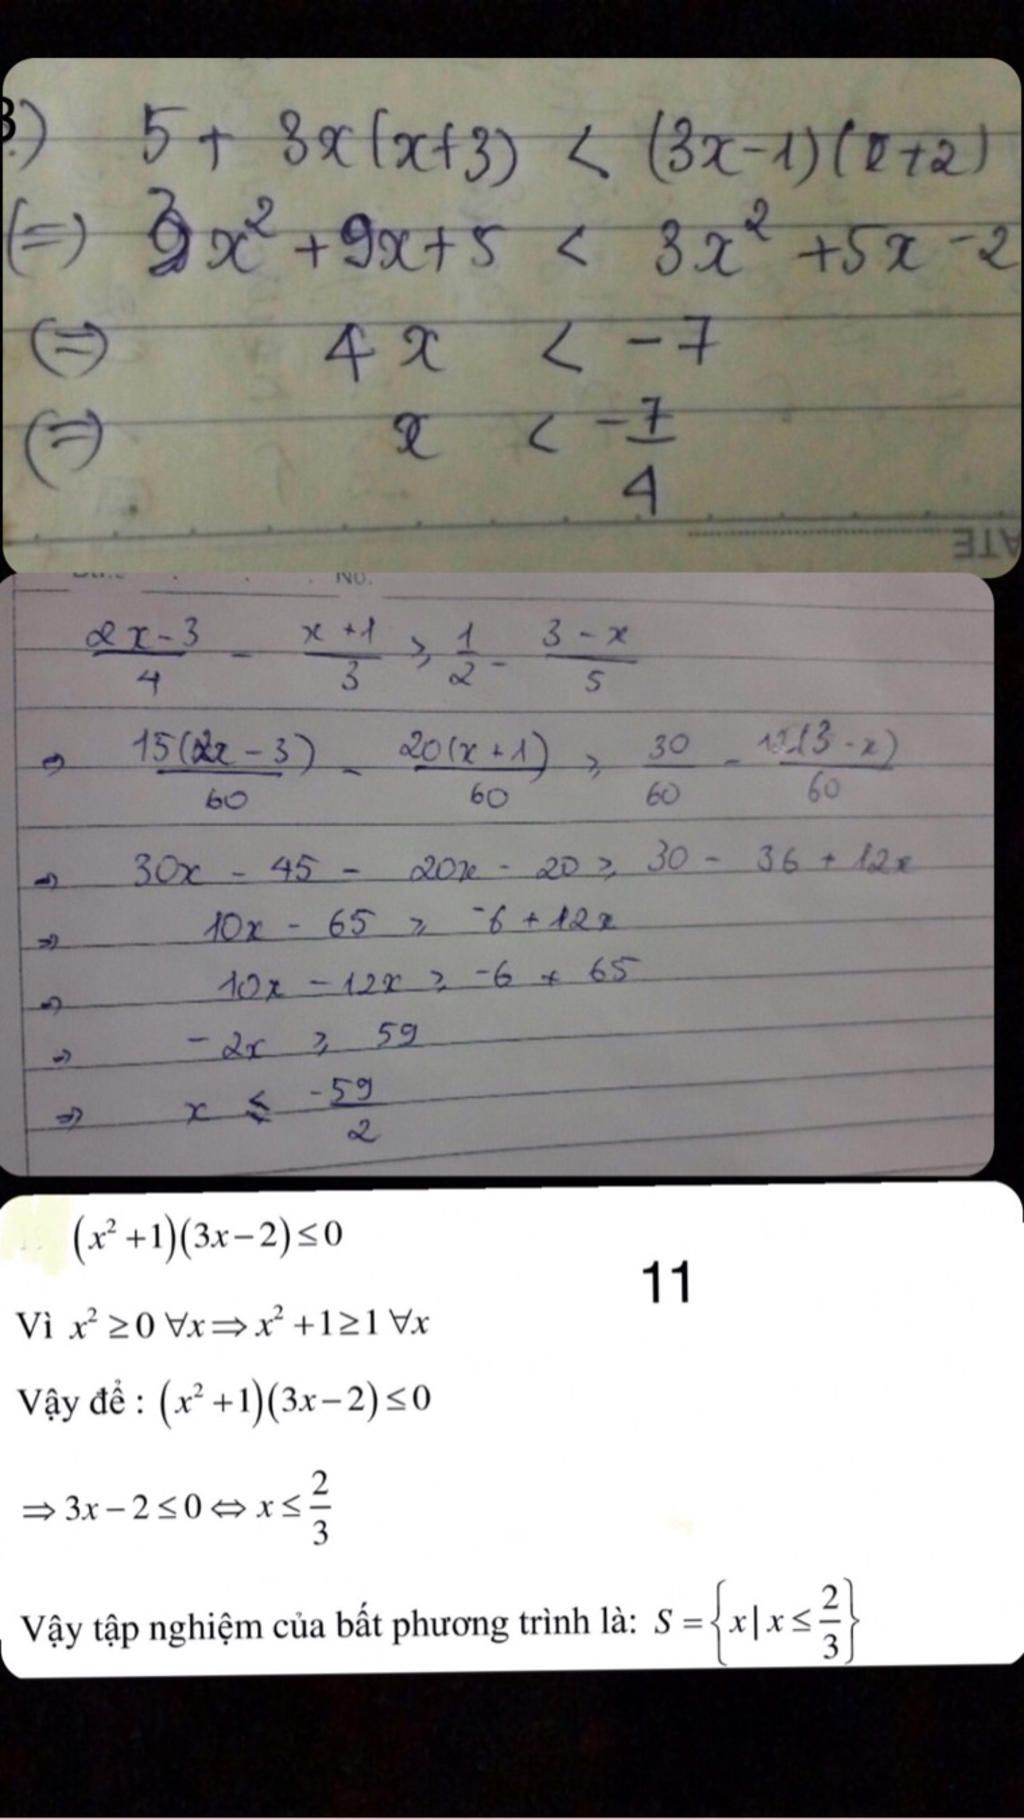 3.) 5 + 3x(x+3) < (3x-1)(x+2)
(=) 3x² + 9x + 5 < 3x² + 5x - 2
(=) 4x < -7
(=) x < -7/4
ATE
No.
(2x-3)/4 - (x+1)/3 ≥ 1/2 - (3-x)/5
⇒ 15(2x-3)/60 - 20(x+1)/60 ≥ 30/60 - 12(3-x)/60
⇒ 30x - 45 - 20x - 20 ≥ 30 - 36 + 12x
⇒ 10x - 65 ≥ -6 + 12x
⇒ 10x - 12x ≥ -6 + 65
⇒ -2x ≥ 59
⇒ x ≤ -59/2
(x²+1)(3x-2)≤0
11
Vì x² ≥0 ∀x⇒x²+1≥1 ∀x
Vậy để : (x²+1)(3x-2)≤0
⇒3x-2≤0⇔x≤2/3
Vậy tập nghiệm của bất phương trình là: S={x|x≤2/3}